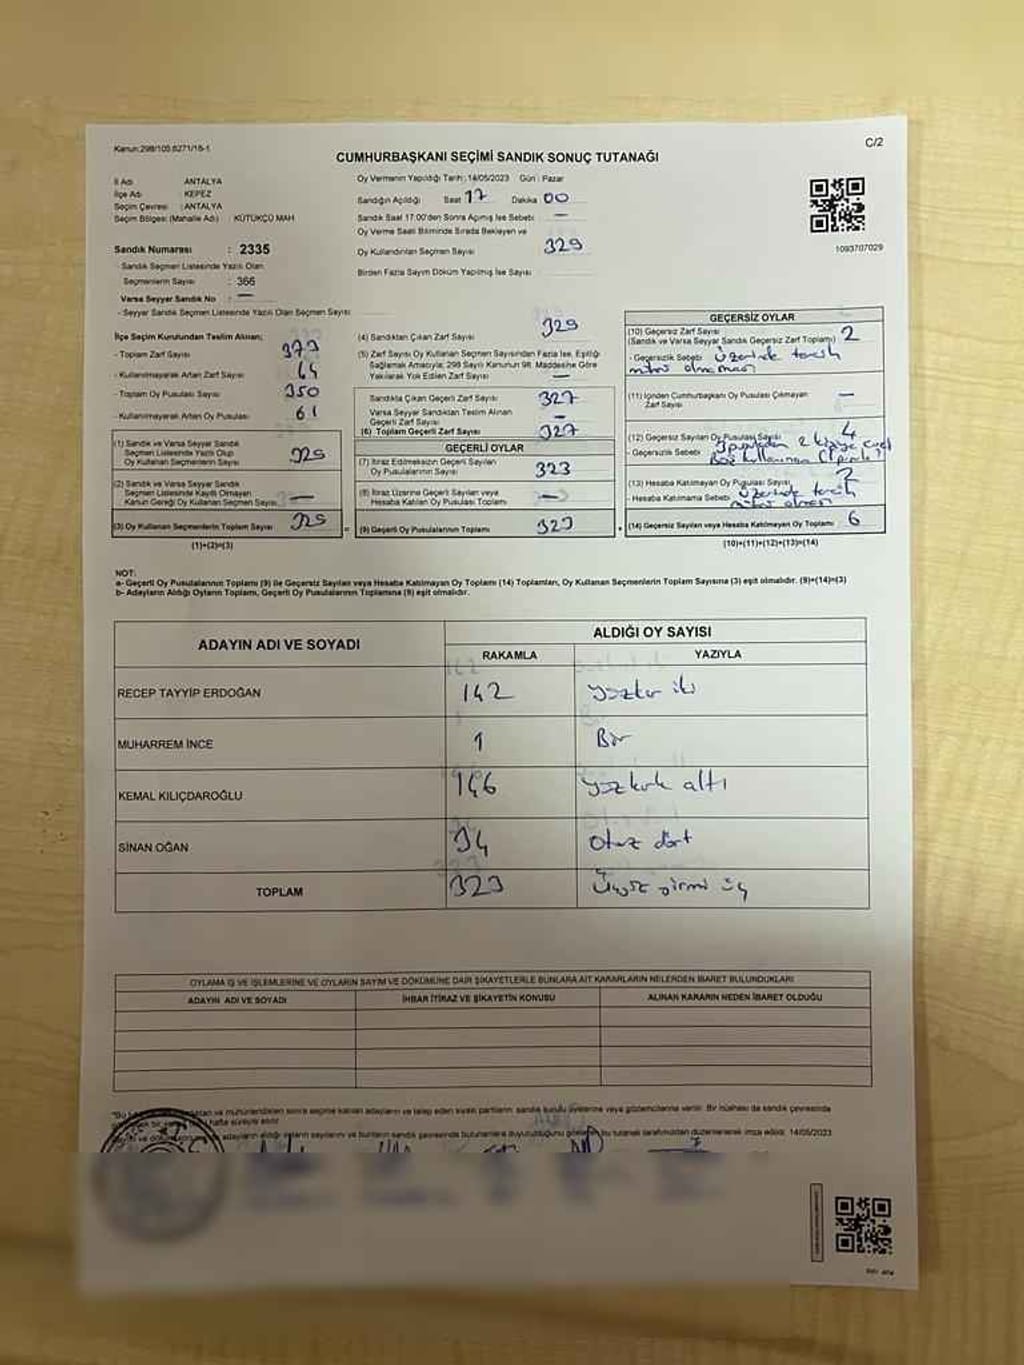 Kanun:298/105,6271/15-1
C/2
CUMHURBAŞKANI SEÇİMİ SANDIK SONUÇ TUTANAĞI
İl Adı ANTALYA
İlçe Adı KEPEZ
Seçim Çevresi : ANTALYA
Seçim Bölgesi (Mahalle Adı) : KÜTÜKÇÜ MAH
Sandık Numarası : 2335
- Sandık Seçmen Listesinde Yazılı Olan
Seçmenlerin Sayısı : 366
Varsa Seyyar Sandık No : —
- Seyyar Sandık Seçmen Listesinde Yazılı Olan Seçmen Sayısı
Oy Vermenin Yapıldığı Tarih : 14/05/2023 Gün : Pazar
Sandığın Açıldığı Saat 17 Dakika 00
Sandık Saat 17:00'den Sonra Açılmış İse Sebebi —
Oy Verme Saati Bitiminde Sırada Bekleyen ve
Oy Kullandırılan Seçmen Sayısı 329
Birden Fazla Sayım Döküm Yapılmış İse Sayısı
1093707029
İlçe Seçim Kurulundan Teslim Alınan;
- Toplam Zarf Sayısı 393
- Kullanılmayarak Artan Zarf Sayısı 64
- Toplam Oy Pusulası Sayısı 350
- Kullanılmayarak Artan Oy Pusulası 61
(1) Sandık ve Varsa Seyyar Sandık
Seçmen Listesinde Yazılı Olup
Oy Kullanan Seçmenlerin Sayısı 329
(2) Sandık ve Varsa Seyyar Sandık
Seçmen Listesinde Kayıtlı Olmayan
Kanun Gereği Oy Kullanan Seçmen Sayısı —
(3) Oy Kullanan Seçmenlerin Toplam Sayısı 329
(1)+(2)=(3)
(4) Sandıktan Çıkan Zarf Sayısı 329
(5) Zarf Sayısı Oy Kullanan Seçmen Sayısından Fazla İse, Eşitliği
Sağlamak Amacıyla; 298 Sayılı Kanunun 98. Maddesine Göre
Yakılarak Yok Edilen Zarf Sayısı —
Sandıkta Çıkan Geçerli Zarf Sayısı 327
Varsa Seyyar Sandıktan Teslim Alınan
Geçerli Zarf Sayısı —
(6) Toplam Geçerli Zarf Sayısı 327
GEÇERLİ OYLAR
(7) İtiraz Edilmeksizin Geçerli Sayılan
Oy Pusulalarının Sayısı 323
(8) İtiraz Üzerine Geçerli Sayılan veya
Hesaba Katılan Oy Pusulası Toplamı —
= (9) Geçerli Oy Pusulalarının Toplamı 323
GEÇERSİZ OYLAR
(10) Geçersiz Zarf Sayısı
(Sandık ve Varsa Seyyar Sandık Geçersiz Zarf Toplamı) 2
- Geçersizlik Sebebi Üzerinde tercih
mührü olması
(11) İçinden Cumhurbaşkanı Oy Pusulası Çıkmayan
Zarf Sayısı —
(12) Geçersiz Sayılan Oy Pusulası Sayısı 4
- Geçersizlik Sebebi 3 pusuladan 2 kişiye
Boş kullanılması
(13) Hesaba Katılmayan Oy Pusulası Sayısı 2
- Hesaba Katılmama Sebebi Üzerinde tercih
mührü olması
+ (14) Geçersiz Sayılan veya Hesaba Katılmayan Oy Toplamı 6
(10)+(11)+(12)+(13)=(14)
NOT:
a- Geçerli Oy Pusulalarının Toplamı (9) ile Geçersiz Sayılan veya Hesaba Katılmayan Oy Toplamı (14) Toplamları, Oy Kullanan Seçmenlerin Toplam Sayısına (3) eşit olmalıdır. (9)+(14)=(3)
b- Adayların Aldığı Oyların Toplamı, Geçerli Oy Pusulalarının Toplamına (9) eşit olmalıdır.
ADAYIN ADI VE SOYADI ALDIĞI OY SAYISI
RAKAMLA YAZIYLA
RECEP TAYYİP ERDOĞAN 142 yüzkırk iki
MUHARREM İNCE 1 Bir
KEMAL KILIÇDAROĞLU 146 yüzkırk altı
SİNAN OĞAN 34 Otuz dört
TOPLAM 323 Üçyüz yirmi üç
OYLAMA İŞ VE İŞLEMLERİNE VE OYLARIN SAYIM VE DÖKÜMÜNE DAİR ŞİKAYETLERLE BUNLARA AİT KARARLARIN NELERDEN İBARET BULUNDUKLARI
ADAYIN ADI VE SOYADI İHBAR İTİRAZ VE ŞİKAYETİN KONUSU ALINAN KARARIN NEDEN İBARET OLDUĞU
ve mühürlendikten sonra seçime katılan adayların ve talep eden siyasi partilerin sandık kurulu üyelerine veya gözlemcilerine verilir. Bir nüshası da sandık çevresinde
hafta süreyle asılır.
adayların aldığı oyların sayılarını ve bunların sandık çevresinde bulunanlara duyurulduğunu gösteren bu tutanak tarafımızdan düzenlenerek imza edildi. 14/05/2023